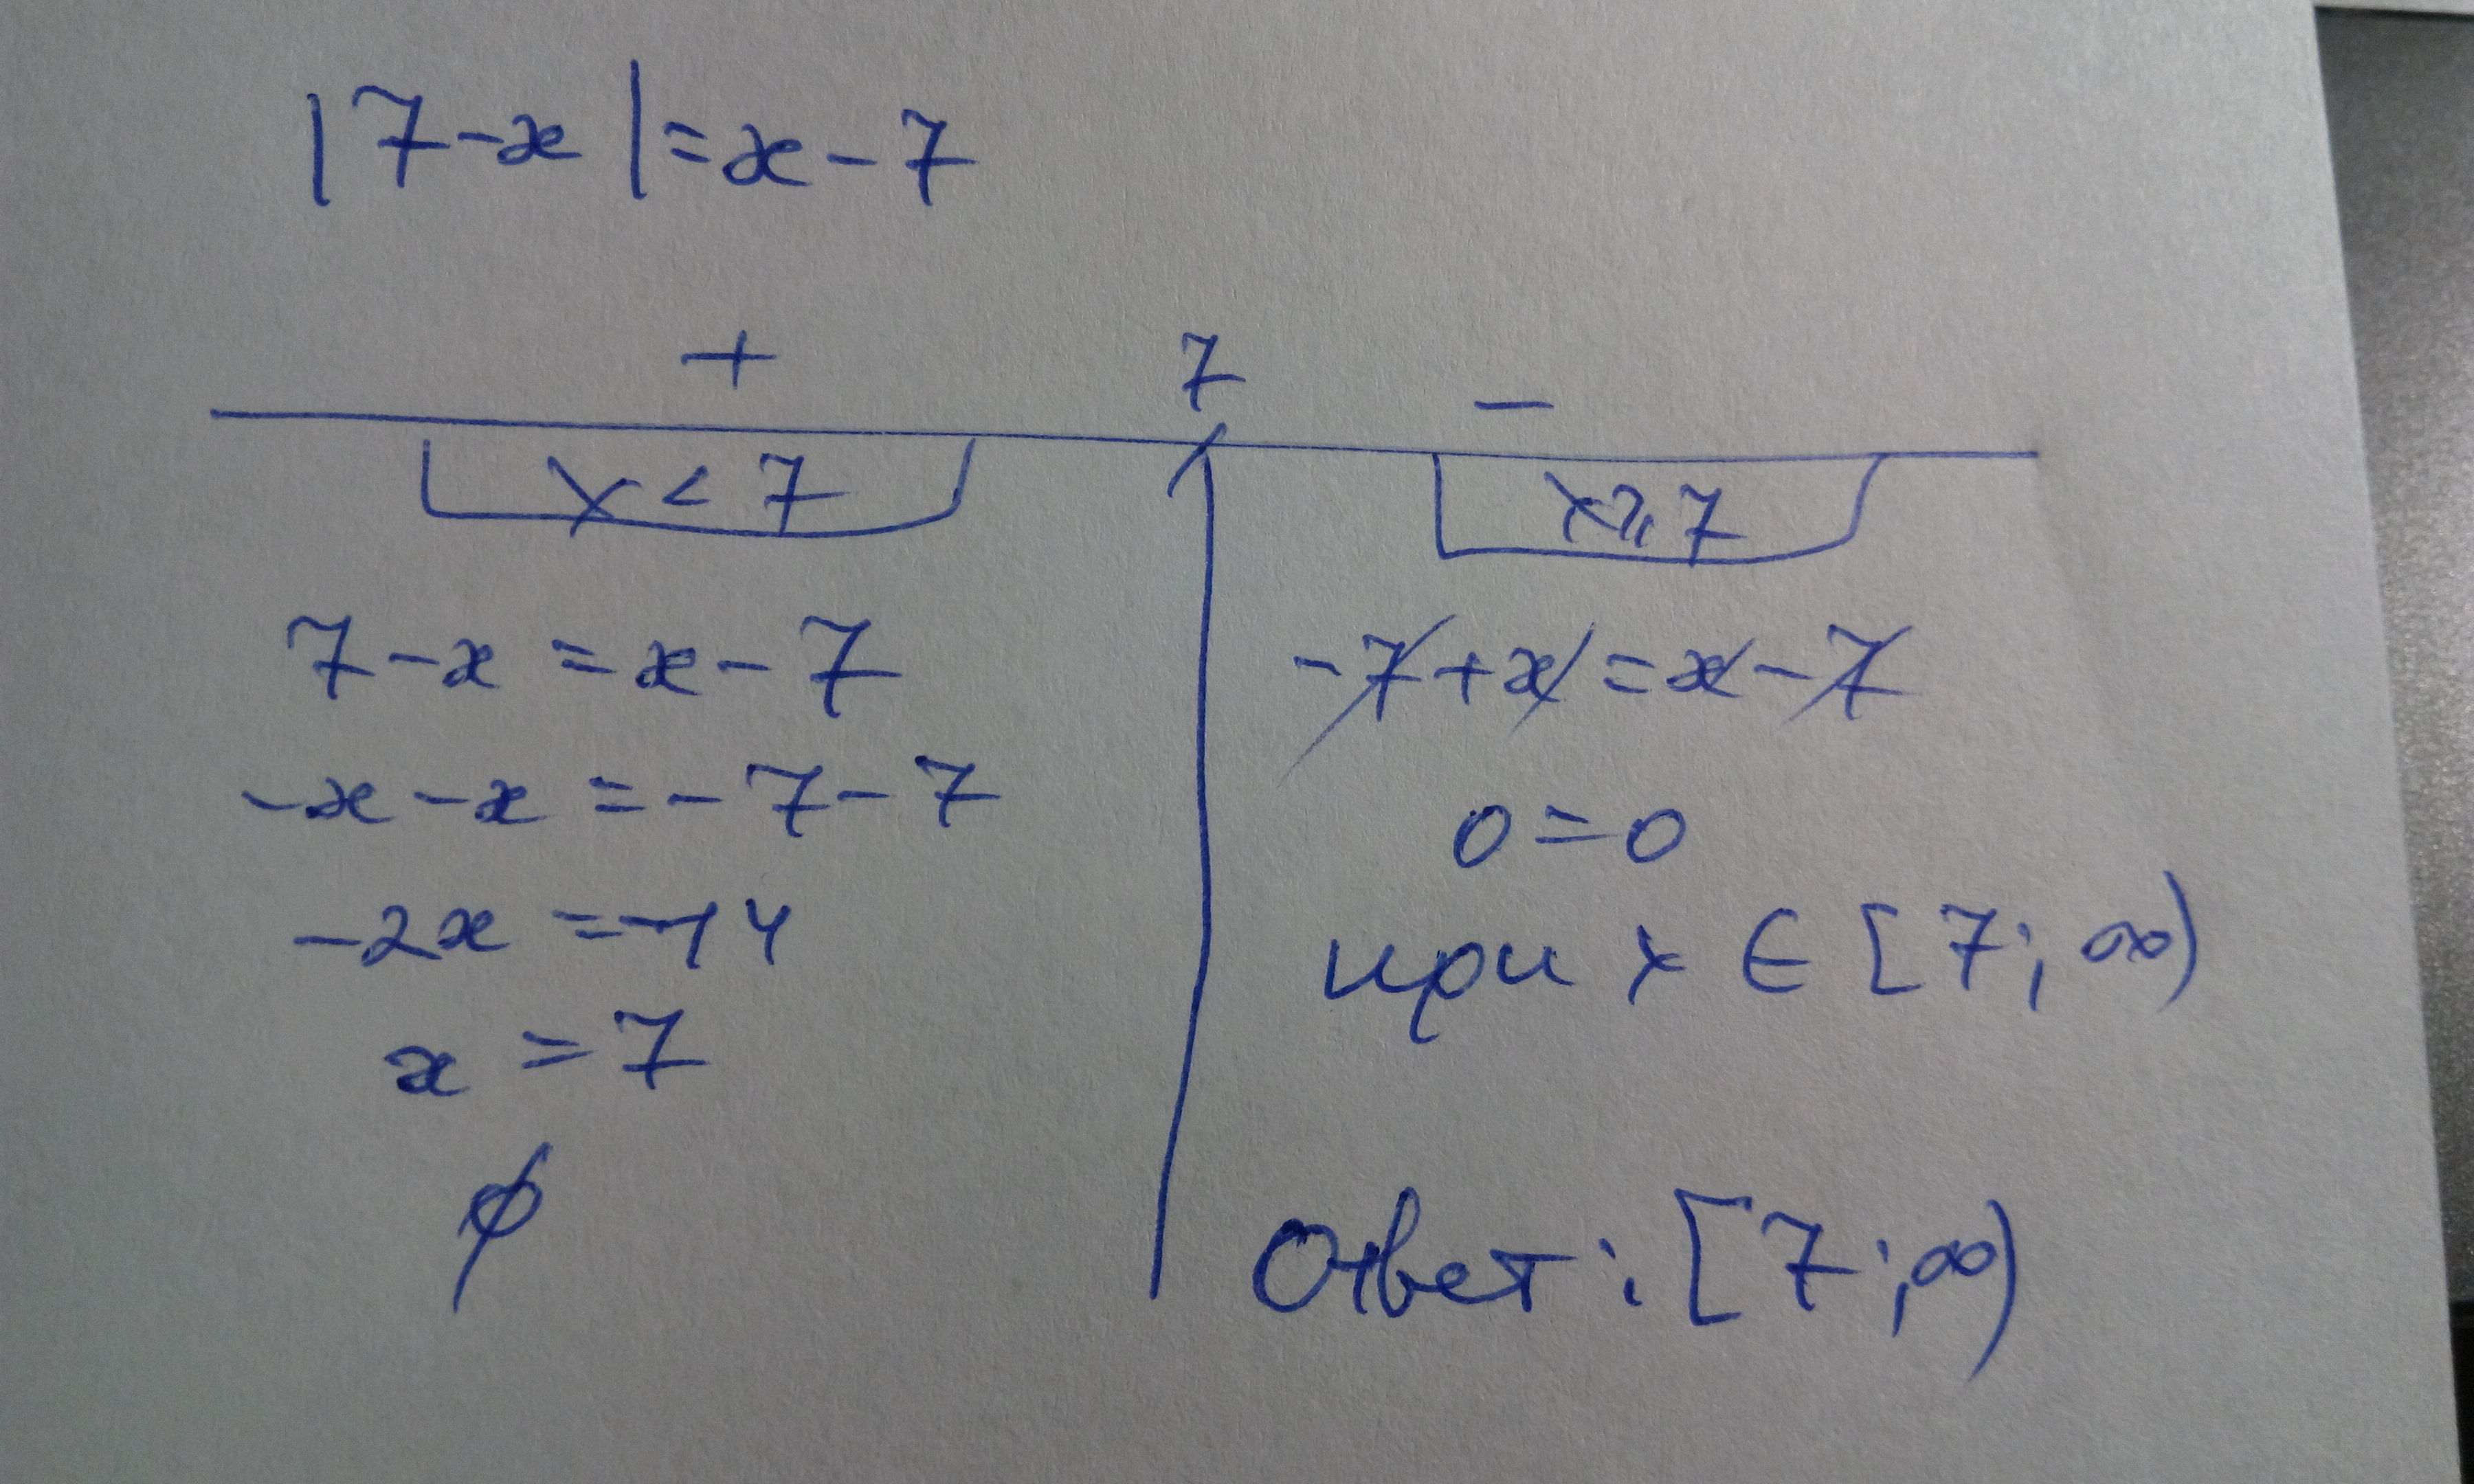 |7-x|=x-7
+ 7 -
x<7
x≥7
7-x=x-7
-x-x=-7-7
-2x=-14
x=7
∅
-7+x=x-7
0=0
при x∈[7;∞)
Ответ: [7;∞)